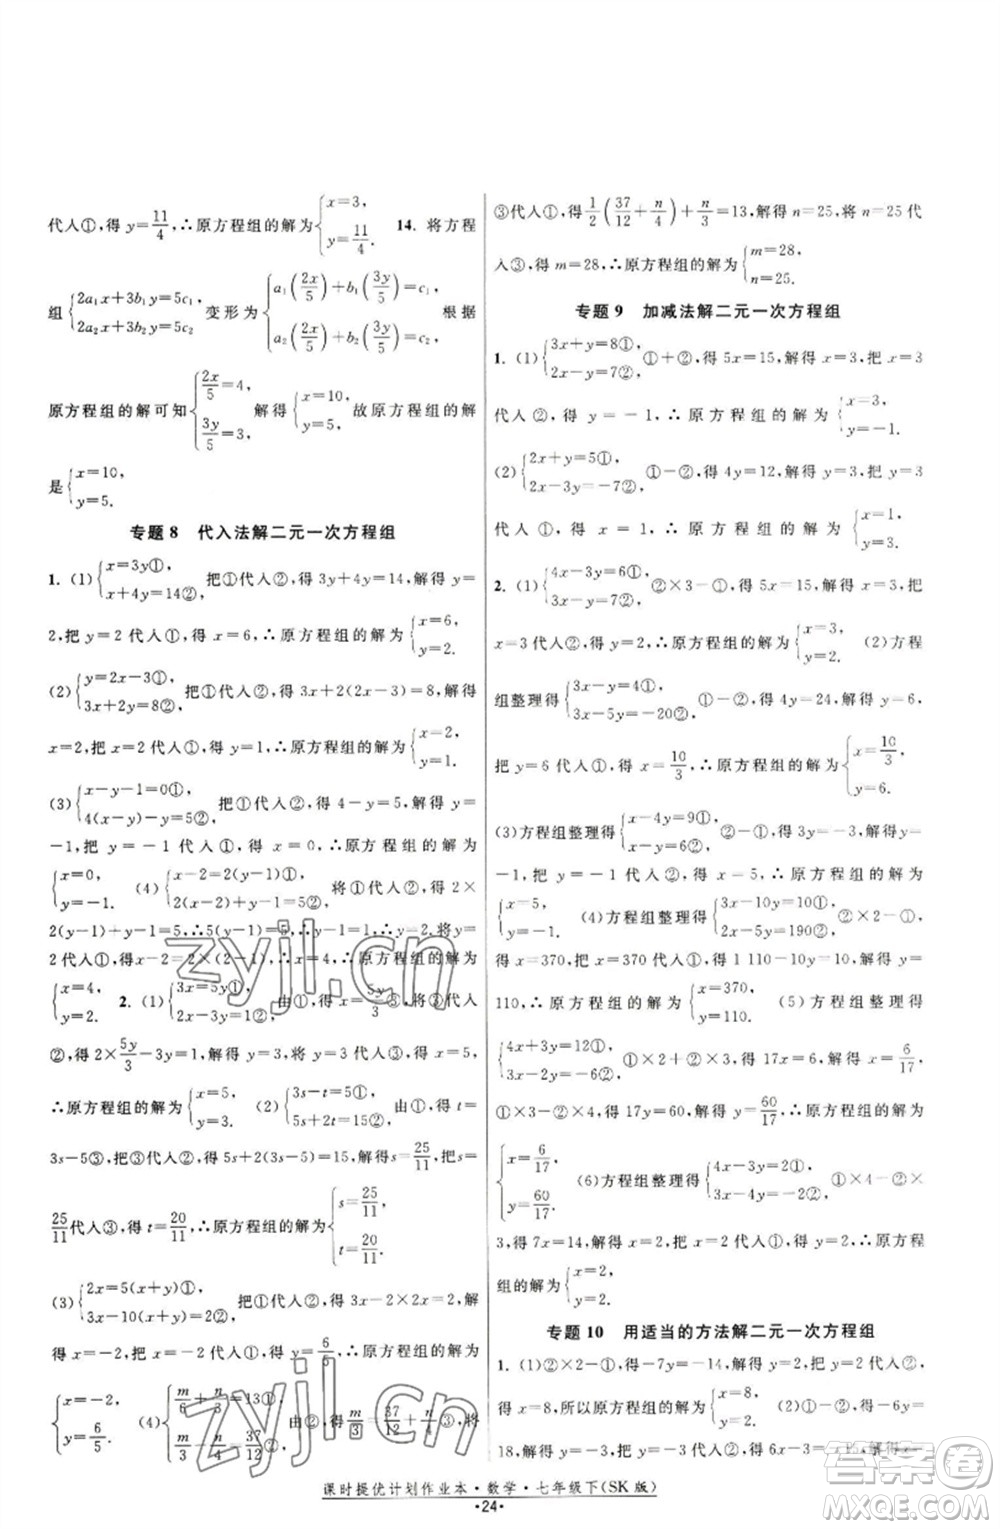 代人①,得 y=11/4,∴原方程组的解为{x=3, y=11/4. 14. 将方程
组{2a₁x+3b₁y=5c₁ 2a₂x+3b₂y=5c₂ 变形为{a₁(2x/5)+b₁(3y/5)=c₁ a₂(2x/5)+b₂(3y/5)=c₂ 根据
原方程组的解可知{2x/5=4, 3y/5=3, 解得{x=10, y=5, 故原方程组的解
是{x=10, y=5.
专题 8 代入法解二元一次方程组
1. (1){x=3y①, x+4y=14②, 把①代人②,得 3y+4y=14,解得 y=
2,把 y=2 代人①,得 x=6,∴原方程组的解为{x=6, y=2.
(2){y=2x-3①, 3x+2y=8②, 把①代人②,得 3x+2(2x-3)=8,解得
x=2,把 x=2 代人①,得 y=1,∴原方程组的解为{x=2, y=1.
(3){x-y-1=0①, 4(x-y)-y=5②, 把①代人②,得 4-y=5,解得 y=
-1,把 y=-1 代人①,得 x=0,∴原方程组的解为
{x=0, y=-1. (4){x-2=2(y-1)①, 2(x-2)+(y-1)=5②, 将①代人②,得 2×
2(y-1)+(y-1)=5,∴y-1=1,∴y=2,将 y=
2 代人①,得 x-2=2×(2-1),∴x=4,∴原方程组的解为
{x=4, y=2. 2. (1) 2x-3y=1②, 由①,得 x=5y/3③,将③代人
②,得 2×5y/3-3y=1,解得 y=3,将 y=3 代人③,得 x=5,
∴原方程组的解为{x=5, y=3. (2){3s-t=5①, 5s+2t=15②, 由①,得 t=
3s-5③,把③代人②,得 5s+2(3s-5)=15,解得 s=25/11,把 s=
25/11代人③,得 t=20/11,∴原方程组的解为{s=25/11, t=20/11.
(3){2x=5(x+y)①, 3x-10(x+y)=2②, 把①代人②,得 3x-2×2x=2,解
得 x=-2,把 x=-2 代人①,得 y=6/5,∴原方程组的解为
{x=-2, y=6/5. (4){m/6+n/3=13①, 由②,得 m/3=37/12+n/4③,将
③代人①,得1/2(37/12+n/4)+n/3=13,解得 n=25,将 n=25 代
人③,得 m=28,∴原方程组的解为{m=28, n=25.
专题 9 加减法解二元一次方程组
1. (1){3x+y=8①, 2x-y=7②, ①+②,得 5x=15,解得 x=3,把 x=3
代人②,得 y=-1,∴原方程组的解为{x=3, y=-1.
(2){2x+y=5①, 2x-3y=-7②, ①-②,得 4y=12,解得 y=3,把 y=3 代人
①,得 x=1,∴原方程组的解为{x=1, y=3.
2. (1){4x-3y=6①, 3x-y=7②, ②×3-①,得 5x=15,解得 x=3,把
x=3 代人②,得 y=2,∴原方程组的解为{x=3, y=2. (2)方程
组整理得{3x-y=4①, 3x-5y=-20②, ①-②,得 4y=24,解得 y=6,
把 y=6 代人①,得 x=10/3,∴原方程组的解为{x=10/3, y=6.
(3)方程组整理得{x-4y=9①, x-y=6②, ①-②,得-3y=3,解得y=
-1,把 y=-1 代人②,得 x=5,∴原方程组的解为
{x=5, y=-1. (4)方程组整理得{3x-10y=10①, 2x-5y=190②, ②×2-①,得
x=370,把 x=370 代人①,得 1 110-10y=10,解得 y=
110,∴原方程组的解为{x=370, y=110. (5)方程组整理得
{4x+3y=12①, 3x-2y=-6②, ①×2+②×3,得 17x=6,解得 x=6/17,
①×3-②×4,得 17y=60,解得 y=60/17,∴原方程组的解为
{x=6/17, y=60/17. (6)方程组整理得{4x-3y=2①, 3x-4y=-2②, ①×4-②×
3,得 7x=14,解得 x=2,把 x=2 代人①,得 y=2,∴原方程
组的解为{x=2, y=2.
专题 10 用适当的方法解二元一次方程组
1. (1)②×2-①,得-7y=-14,解得 y=2,把 y=2 代人②,
得 x=8,所以原方程组的解为{x=8, y=2. (2)①-②,得-6y=
18,解得 y=-3,把 y=-3 代人②,得 6x-3=
课时提优计划作业本·数学·七年级下(SK 版)
·24·
zyjl.cn
zyjl.cn
答案圈
MXQE.COM